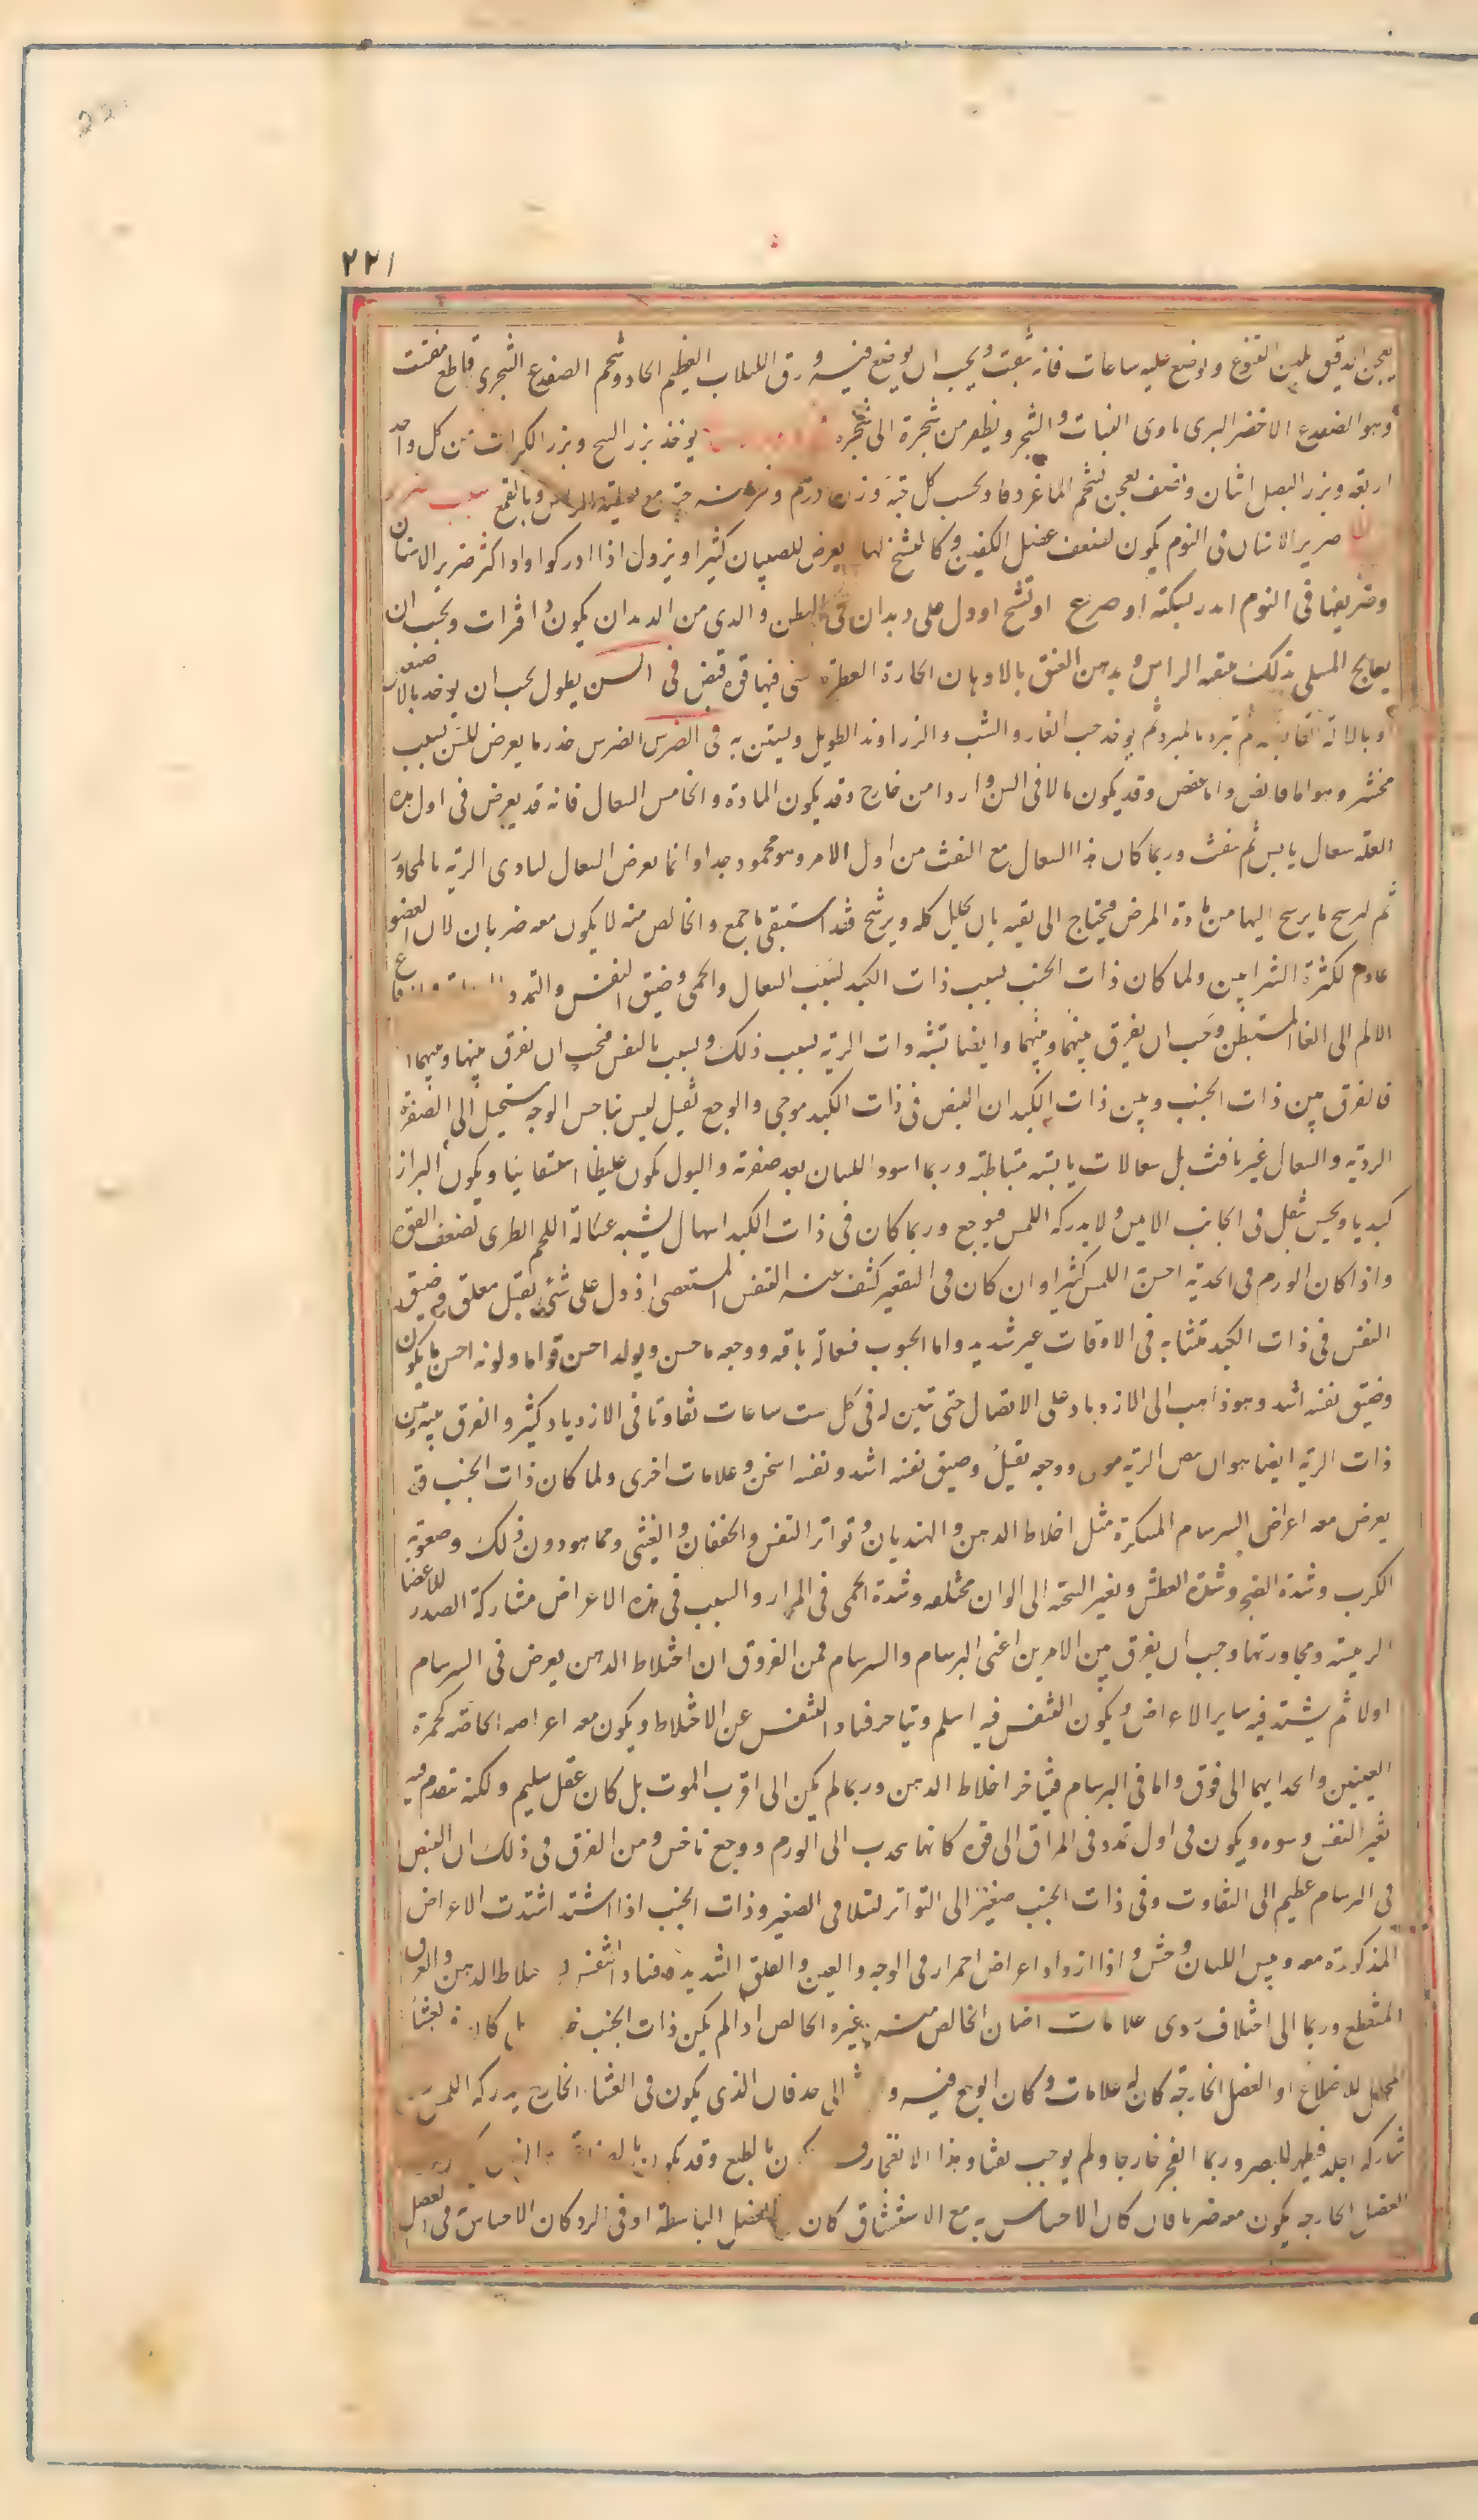 ٢٢١
يعجن الدقيق بلبن اليتوع ويوضع عليه ساعات فانه يفتت ويجب ان يوضع فيه ورق اللبلاب العظيم الحاد وشحم الضفدع الشجرى قاطع مفتت
وهو الضفدع الاخضر البرى ماوى النبات والشجر ويطفر من شجرة الى شجرة يوخذ بزر البنج وبزر الكراث من كل واحد
اربعة وبزر البصل اثنان ونصف يعجن بشحم الماعز دقا ويحبب كل حبة وزن درهم ويدخن منه حبة مع تغطية الراس وبالقمع
صرير الاسنان فى النوم يكون لضعف عضل الفكين وكالتشنج لها يعرض للصبيان كثيرا ويزول اذا ادركوا واذا كثر صرير الاسنان
وضريفها فى النوم انذر بسكتة او صرع او تشنج او دل على ديدان فى البطن والذى من الديدان يكون ذا فترات ويجب ان
يعالج المبتلى بذلك بتنقية الراس ويدهن العنق بالادهان الحارة العطرة التى فيها قوة قبض فى السن يطول يجب ان يوخذ بالاصبعين
او بالالة القابضة ثم تبرد بالمبرد ثم يوخذ حب الغار والشب والزراوند الطويل ويستن به فى الضرس الضرس خدر ما يعرض للسن بسبب
مخشن وهو اما قابض واما عفص وقد يكون مما لاقى السن واردا من خارج وقد يكون المادة والخامس السعال فانه قد يعرض فى اول هذه
العلة سعال يابس ثم نفث وربما كان هذا السعال مع النفث من اول الامر وهو محمود جدا وانما يعرض السعال لتاذى الرية بالمجاورة
ثم لرشح ما يرشح اليها من مادة المرض فيحتاج الى نقيه بان يحلل كله ويرشح فقد استبقى ما جمع والخالص منه لا يكون معه ضربان لان العضو
عادم لكثرة الشرايين ولما كان ذات الجنب يسبب ذات الكبد بسبب السعال والحمى وضيق النفس والتمدد
الالم الى الغشا المستبطن وجب ان يفرق بينهما وبينهما وايضا تشبه ذات الرية بسبب ذلك وبسبب بالنفس فيجب ان يفرق بينها وبينهما
فالفرق بين ذات الجنب وبين ذات الكبد ان النبض فى ذات الكبد موجى والوجع ثقيل ليس بناخس الوجه مستحيل الى الصفرة
الردية والسعال غير نافث بل سعالات يابسة متباطئة وربما اسود اللسان بعد صفرته والبول يكون غليظا استسقائيا ويكون البراز
كبديا ويحس بثقل فى الجانب الايمن ولا يدركه اللمس فيوجع وربما كان فى ذات الكبد اسهال يشبه غسالة اللحم الطرى لضعف القوة
واذا كان الورم فى الحدبة احس اللمس كثيرا وان كان فى التقعير كشف عنه التنفس المستعصى اذ دل على شئ ثقيل معلق فى ضيق
النفس فى ذات الكبد متشابه فى الاوقات غير شديد واما المجنوب فسعاله نافث ووجعه ناخس وبوله احسن قواما ولونه احسن ما يكون
وضيق نفسه اشد وهو ذاهب الى الازدياد على الاتصال حتى تبين له فى كل ست ساعات تفاوتا فى الازدياد كثير والفرق بينه وبين
ذات الرية ايضا هو ان نبض الرية موجى ووجعه ثقيل وضيق نفسه اشد ونفسه اسخن وعلامات اخرى ولما كان ذات الجنب قد
يعرض معه اعراض السرسام المنكرة مثل اختلاط الذهن والهذيان وتواتر النفس والخفقان والغشى ومما هو دون ذلك وصعوبة
الكرب وشدة الضجر وشدة العطش وتغير السحنة الى الوان مختلفة وشدة الحمى فى المرار والسبب فى هذه الاعراض مشاركة الصدر للاعضا
الرئيسة ومجاورتها وجب ان يفرق بين الامرين اعنى البرسام والسرسام فمن الفروق ان اختلاط الذهن يعرض فى السرسام
اولا ثم يشتد فيه ساير الاعراض ويكون التنفس فيه اسلم ويتاخر فساد التنفس عن الاختلاط ويكون معه اعراضه الخاصة كحمرة
العينين وانجذابهما الى فوق واما فى البرسام فيتاخر اختلاط الذهن وربما لم يكن الى قرب الموت بل كان عقل سليم ولكنه يتقدم فيه
تغير النفس وسوه ويكون فى اول تمدد فى المراق الى فوق كانما يجذب الى الورم ووجع ناخس ومن الفرق فى ذلك ان النبض
فى السرسام عظيم الى التفاوت وفى ذات الجنب صغير الى التواتر لتلافى الصغير وذات الجنب اذا اشتد اشتدت الاعراض
المذكورة معه ويبس اللسان وخشن واذا ازداد اعراض احمرار فى الوجه والعين والقلق الشديد وفساد النفس واختلاط الذهن والعرق
المتقطع وربما الى اختلاف ردى علامات اصناف الخالص منه وغيره الخالص اذا لم يكن ذات الجنب
المجلل للاضلاع او العضل الخارجة كان له علامات وكان الوجع فيه الى حد فان الذى يكون فى الغشا الخارج يدركه اللمس
شاركه الجلد فيظهر للبصر وربما انفجر خارجا ولم يوجب نفثا وهذا الانفجار بالطبع وقد يكون
العضل الخارجة يكون معه ضربان فان كان الاحساس به مع الاستنشاق كان العضل الباسطة او فى الرد كان الاحساس فى العضل